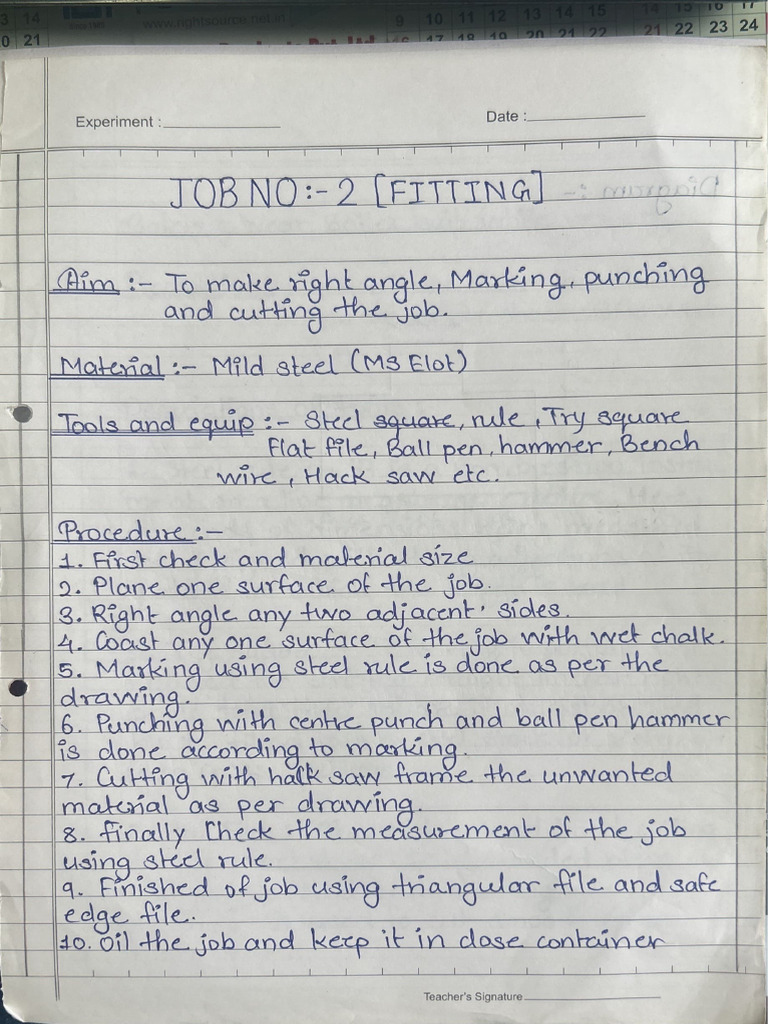 3 14
0 21
www.rightsource.net.in
9 10 11 12 13 14 15
17 18 19 20 21 22
14 15 16 17
21 22 23 24
Experiment :
Date :
JOB NO:- 2 [FITTING]
Diagram :-
Aim :- To make right angle, Marking, punching
and cutting the job.
Material :- Mild steel (MS Elot)
Tools and equip :- Steel square, rule, Try square
Flat file, Ball pen, hammer, Bench
wire, Hack saw etc.
Procedure :-
1. First check and material size
2. Plane one surface of the job.
3. Right angle any two adjacent sides.
4. Coast any one surface of the job with wet chalk.
5. Marking using steel rule is done as per the
drawing.
6. Punching with centre punch and ball pen hammer
is done according to marking.
7. Cutting with halk saw frame the unwanted
material as per drawing.
8. finally Check the measurement of the job
using steel rule.
9. Finished of job using triangular file and safe
edge file.
10. Oil the job and keep it in close container
Teacher's Signature